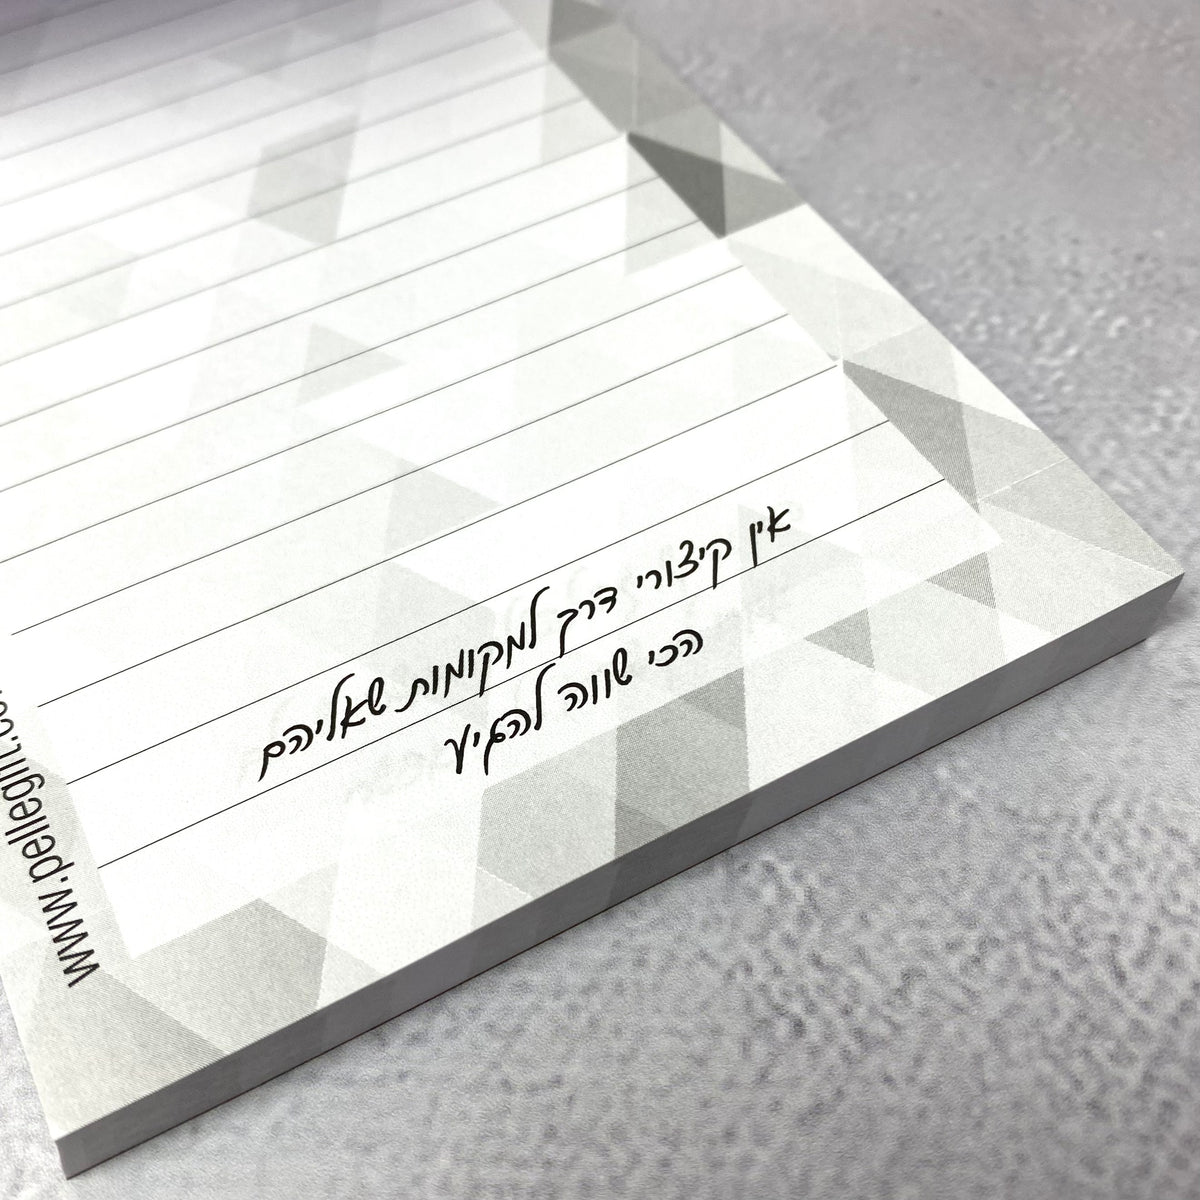 אין קיצורי דרך למקומות שאליהם
הכי שווה להגיע
www.pellegri.co